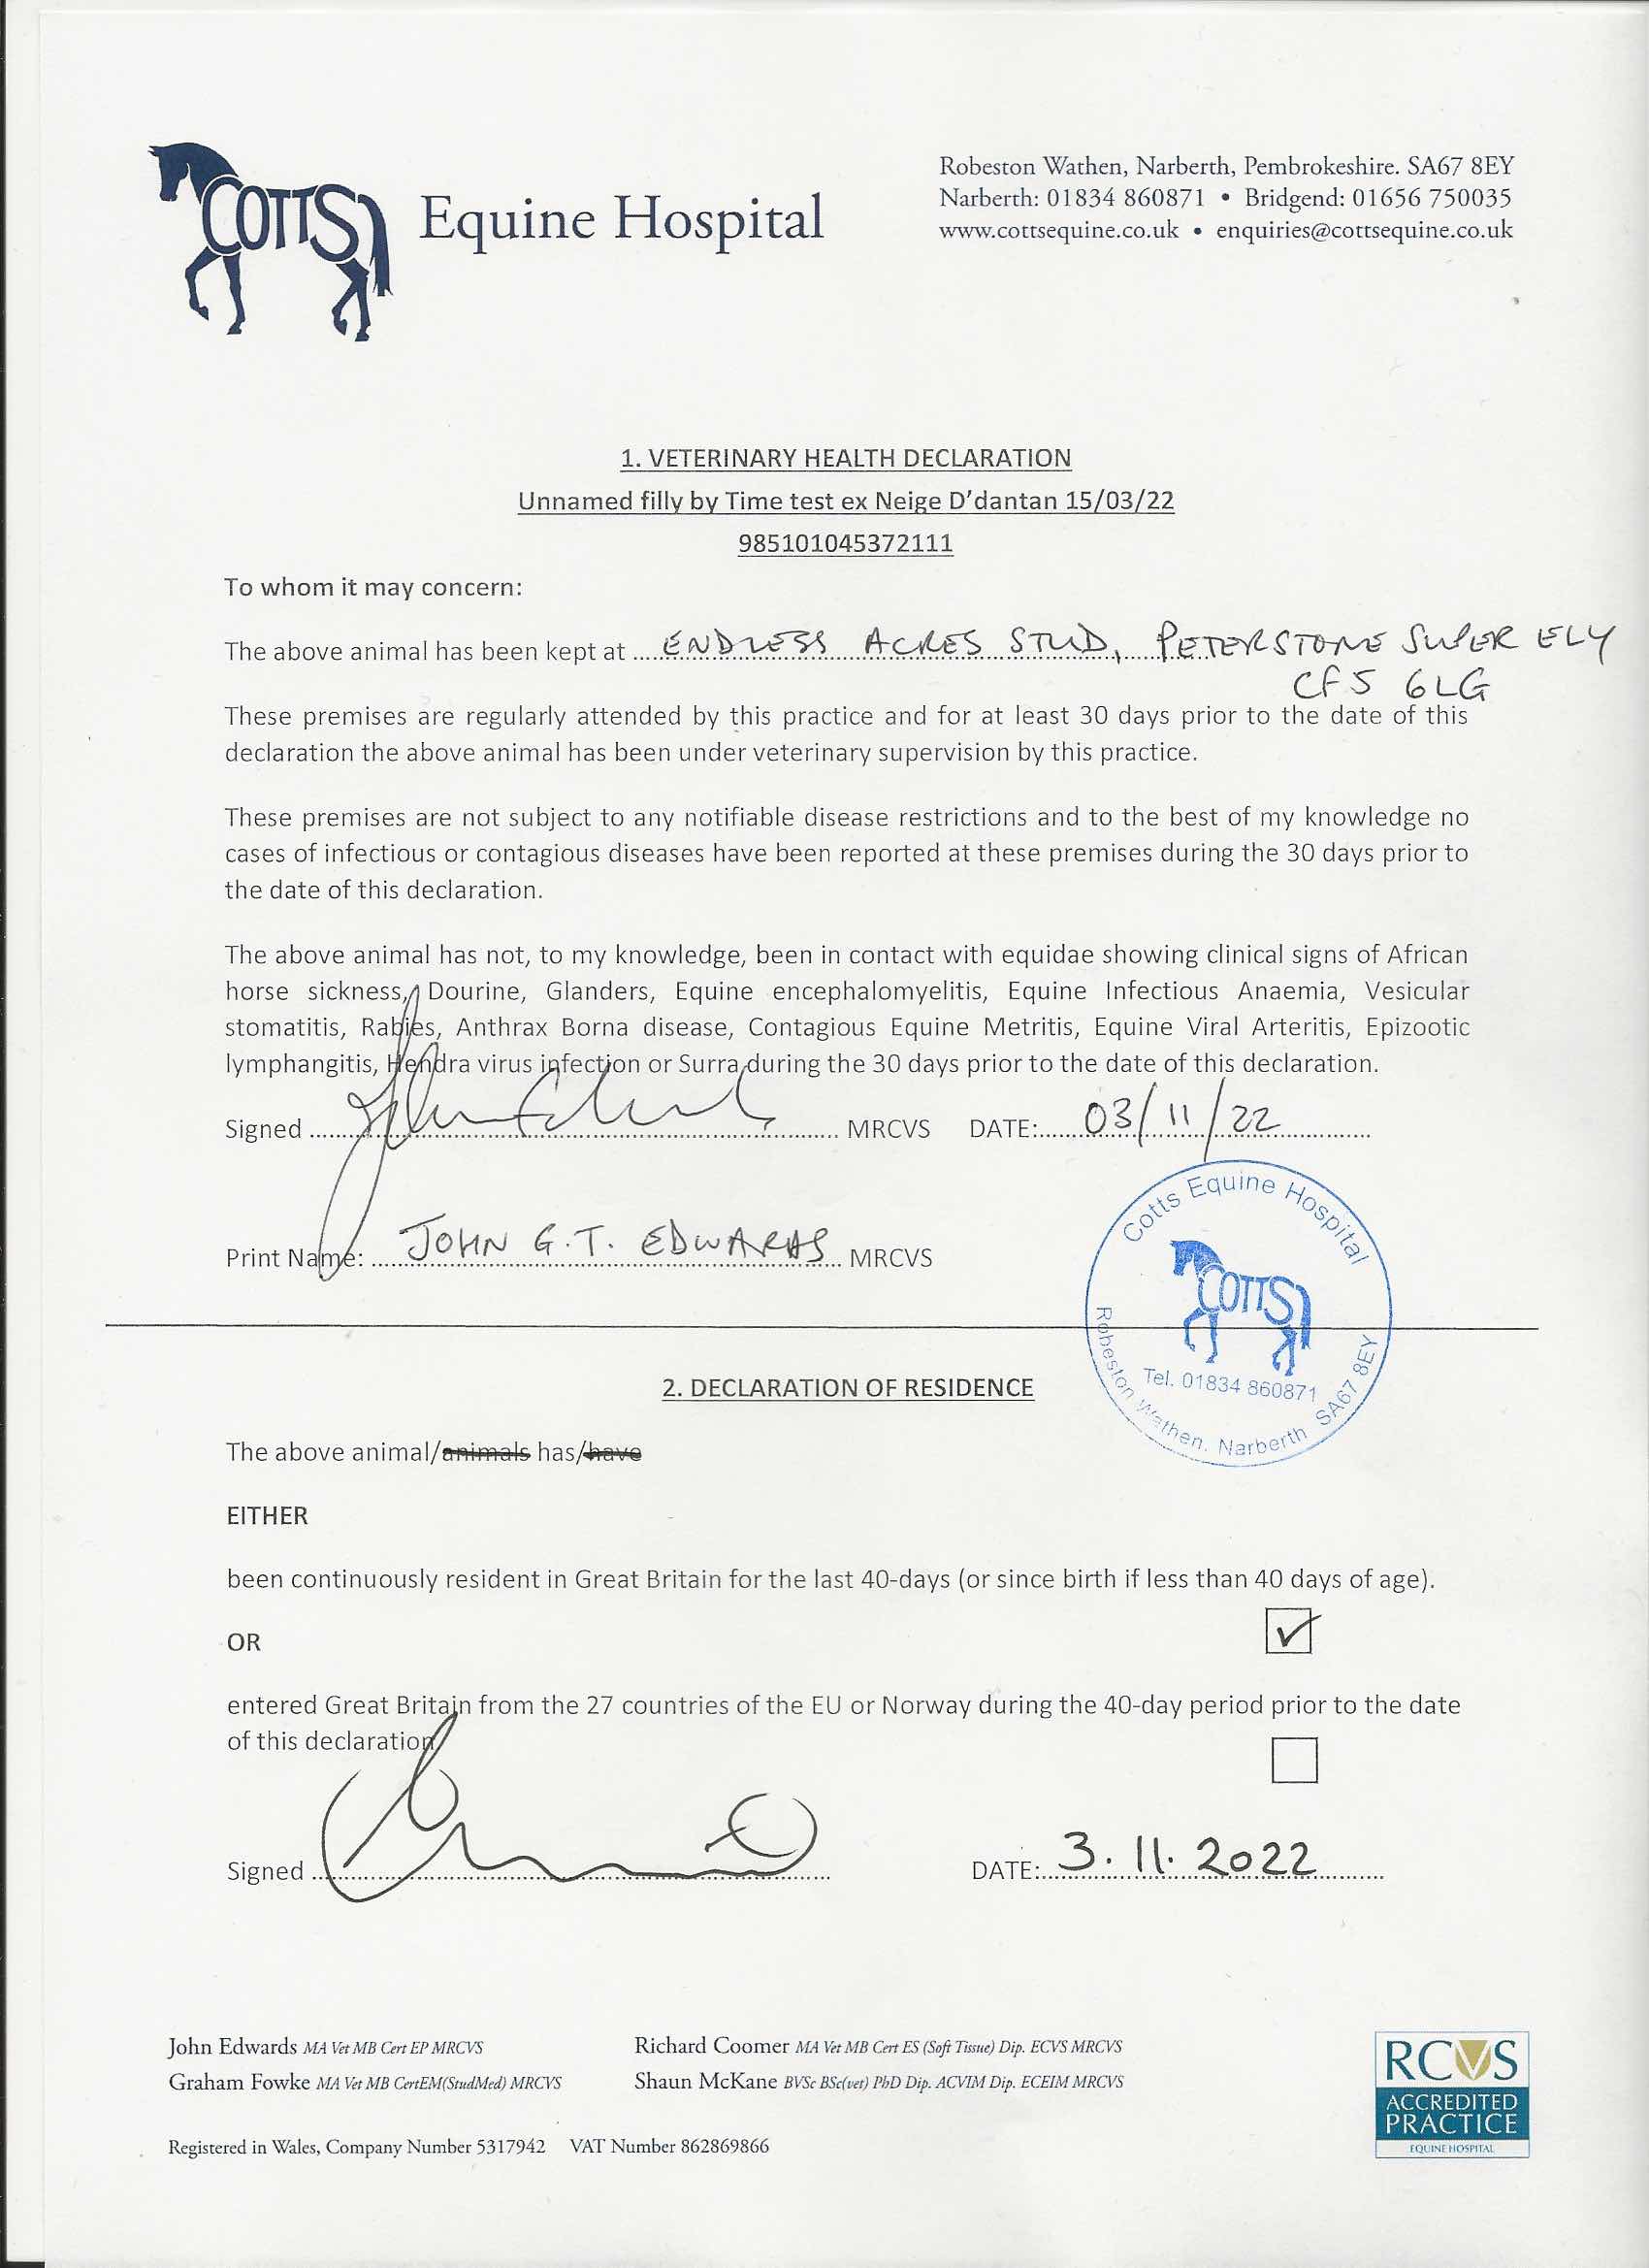 COTTS Equine Hospital
Robeston Wathen, Narberth, Pembrokeshire. SA67 8EY
Narberth: 01834 860871 • Bridgend: 01656 750035
www.cottsequine.co.uk • enquiries@cottsequine.co.uk
1. VETERINARY HEALTH DECLARATION
Unnamed filly by Time test ex Neige D'dantan 15/03/22
985101045372111
To whom it may concern:
The above animal has been kept at ENDLESS ACRES STUD, PETERSTONE SUPER ELY
CF5 6LG
These premises are regularly attended by this practice and for at least 30 days prior to the date of this
declaration the above animal has been under veterinary supervision by this practice.
These premises are not subject to any notifiable disease restrictions and to the best of my knowledge no
cases of infectious or contagious diseases have been reported at these premises during the 30 days prior to
the date of this declaration.
The above animal has not, to my knowledge, been in contact with equidae showing clinical signs of African
horse sickness, Dourine, Glanders, Equine encephalomyelitis, Equine Infectious Anaemia, Vesicular
stomatitis, Rabies, Anthrax Borna disease, Contagious Equine Metritis, Equine Viral Arteritis, Epizootic
lymphangitis, Hendra virus infection or Surra during the 30 days prior to the date of this declaration.
Signed MRCVS DATE: 03/11/22
Print Name: JOHN G.T. EDWARDS MRCVS
Cotts Equine Hospital
COTTS
Tel. 01834 860871
Robeston Wathen, Narberth SA67 8EY
2. DECLARATION OF RESIDENCE
The above animal/animals has/have
EITHER
been continuously resident in Great Britain for the last 40-days (or since birth if less than 40 days of age).
OR
entered Great Britain from the 27 countries of the EU or Norway during the 40-day period prior to the date
of this declaration
Signed DATE: 3.11.2022
John Edwards MA Vet MB Cert EP MRCVS
Richard Coomer MA Vet MB Cert ES (Soft Tissue) Dip. ECVS MRCVS
Graham Fowke MA Vet MB CertEM(StudMed) MRCVS
Shaun McKane BVSc BSc(vet) PhD Dip. ACVIM Dip. ECEIM MRCVS
Registered in Wales, Company Number 5317942 VAT Number 862869866
RCVS
ACCREDITED
PRACTICE
EQUINE HOSPITAL